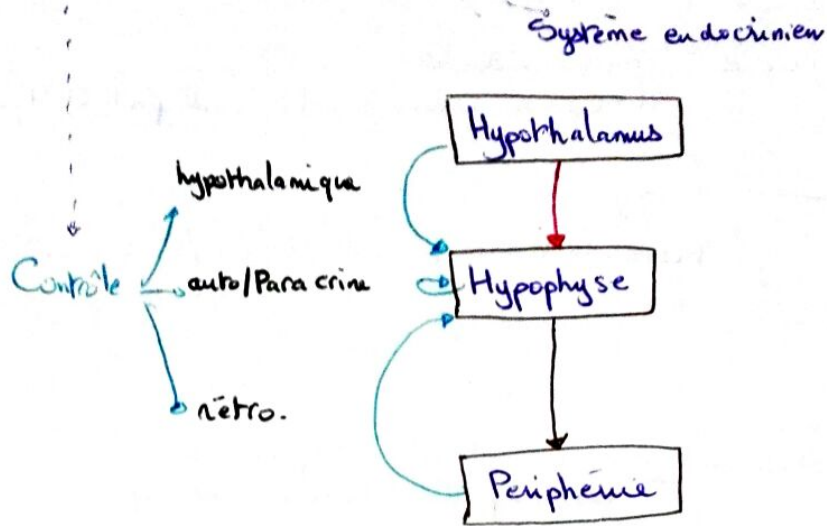 Système endocrinien
Hypothalamus
hypothalamique
Contrôle
auto/Paracrine
Hypophyse
rétro.
Périphérie